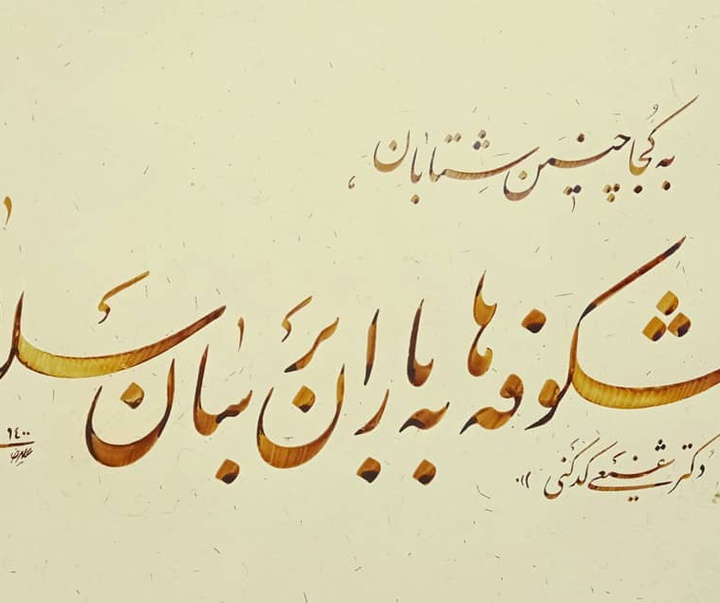 به کُجا چنین شتابان،
شکوفه ها به باران برسان سلا
دکتر شفیعی کدکنی
۱۴۰۰